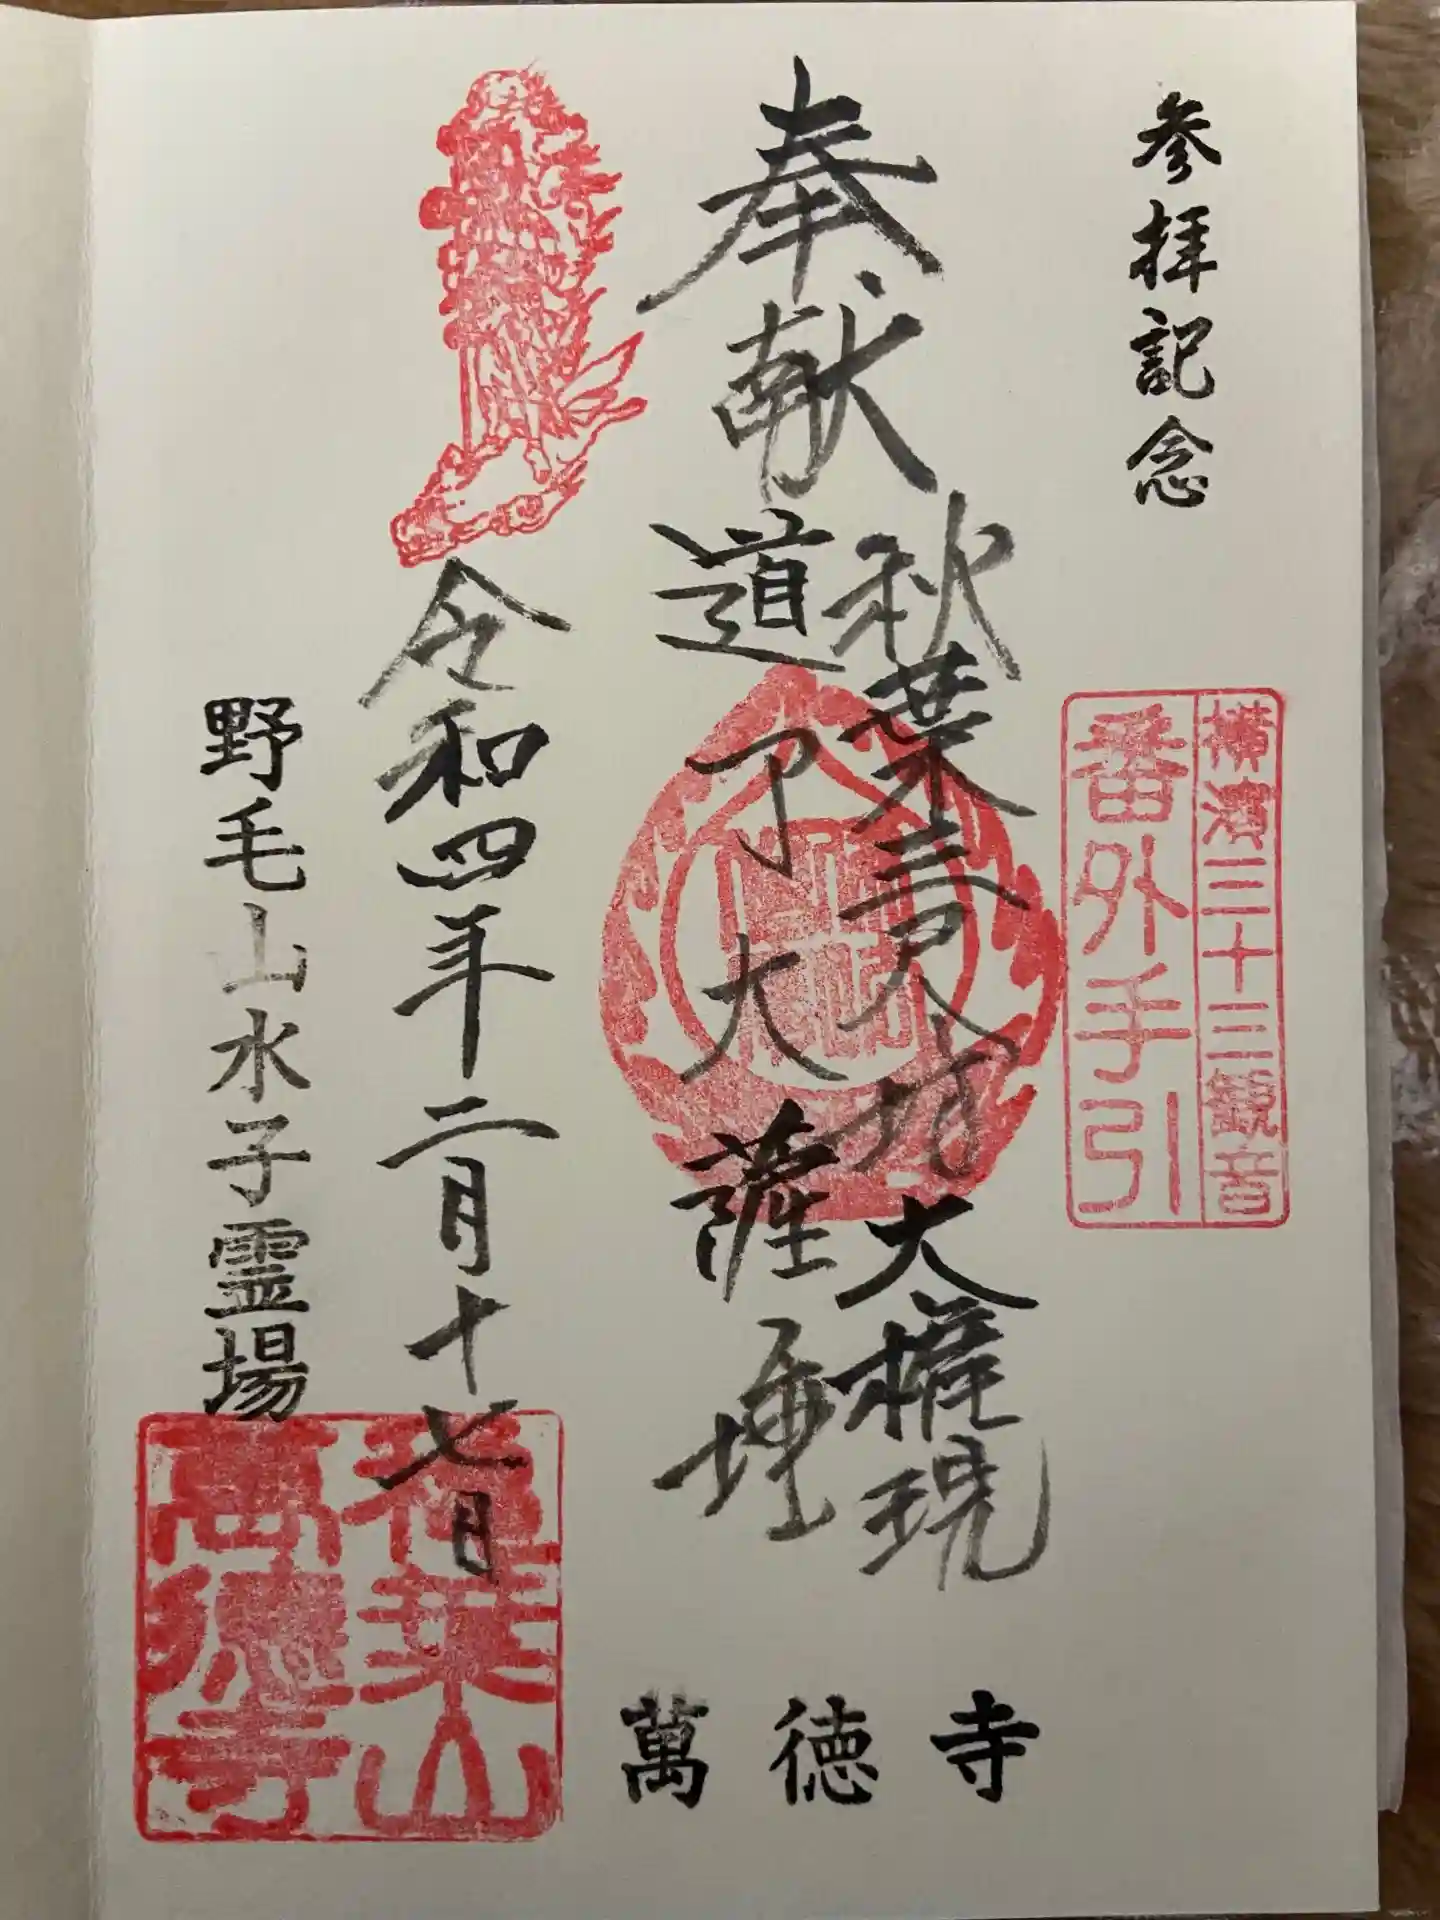 参拝記念
横濱三十三観音
番外手引
奉献
秋葉三尺坊大権現
道了大薩埵
令和四年二月十七日
野毛山水子霊場
秋葉山
萬徳寺
萬徳寺